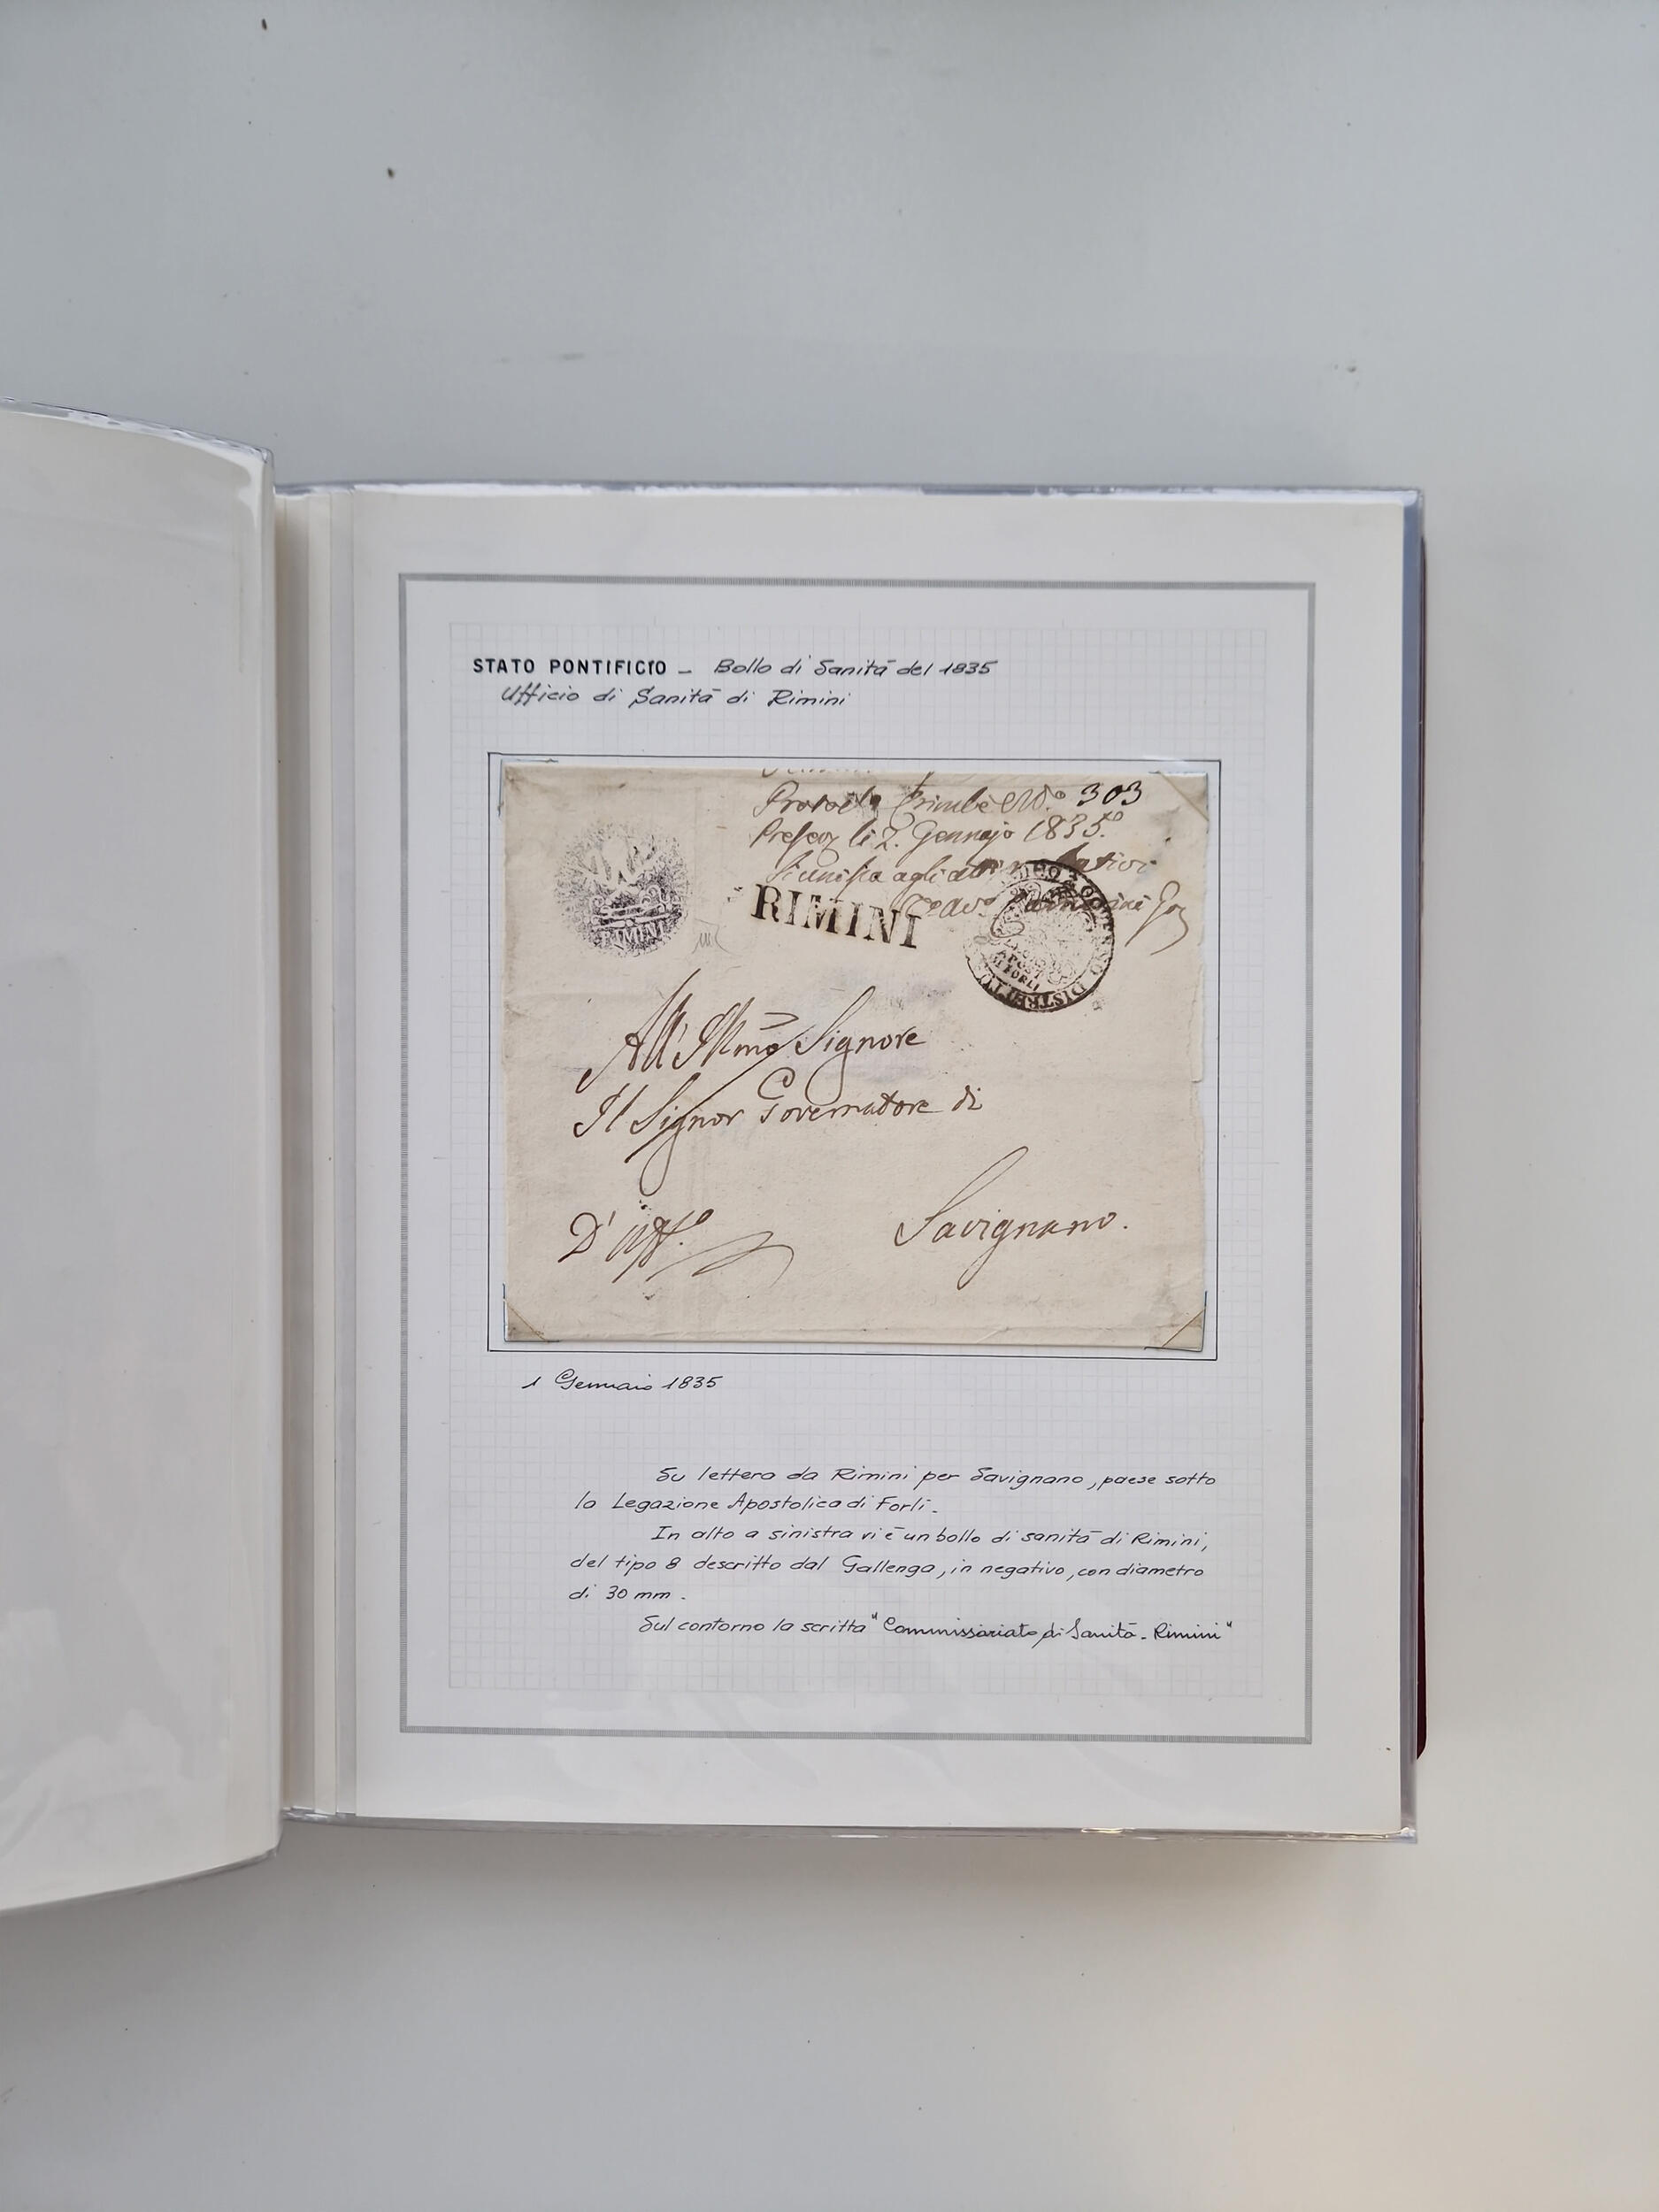 STATO PONTIFICIO - Bollo di Sanità del 1835
Ufficio di Sanità di Rimini
No. 303
li 2. Gennajo 1835.
agli atti
RIMINI
RIMINI
APOST
DI FORLI
DISTRETTUO
All' Illmo Signore
Il Signor Governatore di
D' Uff.o
Savignano.
1 Gennaio 1835
Su lettera da Rimini per Savignano, paese sotto
la Legazione Apostolica di Forlì.
In alto a sinistra vi è un bollo di sanità di Rimini,
del tipo 8 descritto dal Gallenga, in negativo, con diametro
di 30 mm.
Sul contorno la scritta "Commissariato di Sanità - Rimini"